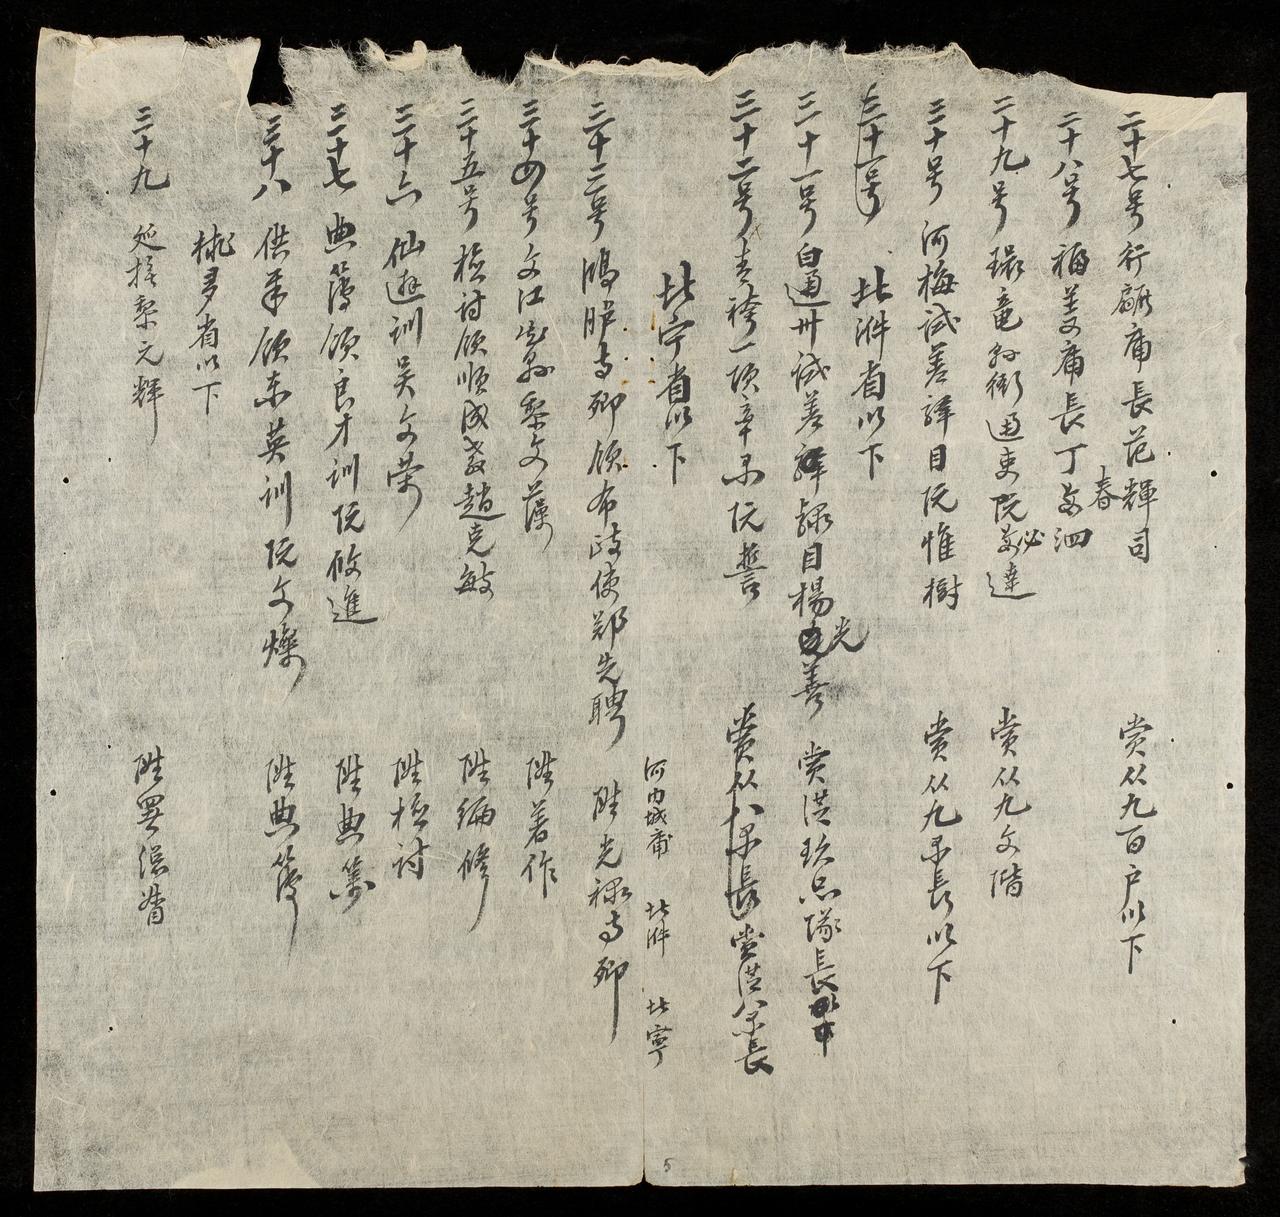 二十七号 行 庯長范輝司 賞从九百户以下
二十八号 福美庯長丁 泗 春
二十九号 瑞竜 衕通吏阮 必達 賞从九文階
三十号 河梅試差驛目阮惟樹 賞从九品長以下
三十一号 北泮省以下
三十一号 白通州試差驛 目楊光善 賞洪 品隊長
三十二号 青襟一項章品阮誓 賞从八品長 賞洪八品長
北宁省以下
河内城庯 北泮 北寧
三十三号 鴻臚寺卿領布政使鄭先聘 陞光禄寺卿
三十四号 文江 县黎文藻 陞著作
三十五号 檢討領順成教趙克敏 陞編修
三十六 仙遊訓吳文荣 陞檢討
三十七 典簿領良才訓阮攸進 陞典簿
三十八 供奉領东英訓阮文燦 陞典簿
桃多省以下
三十九 巡撫黎元輝 陞署總督
5